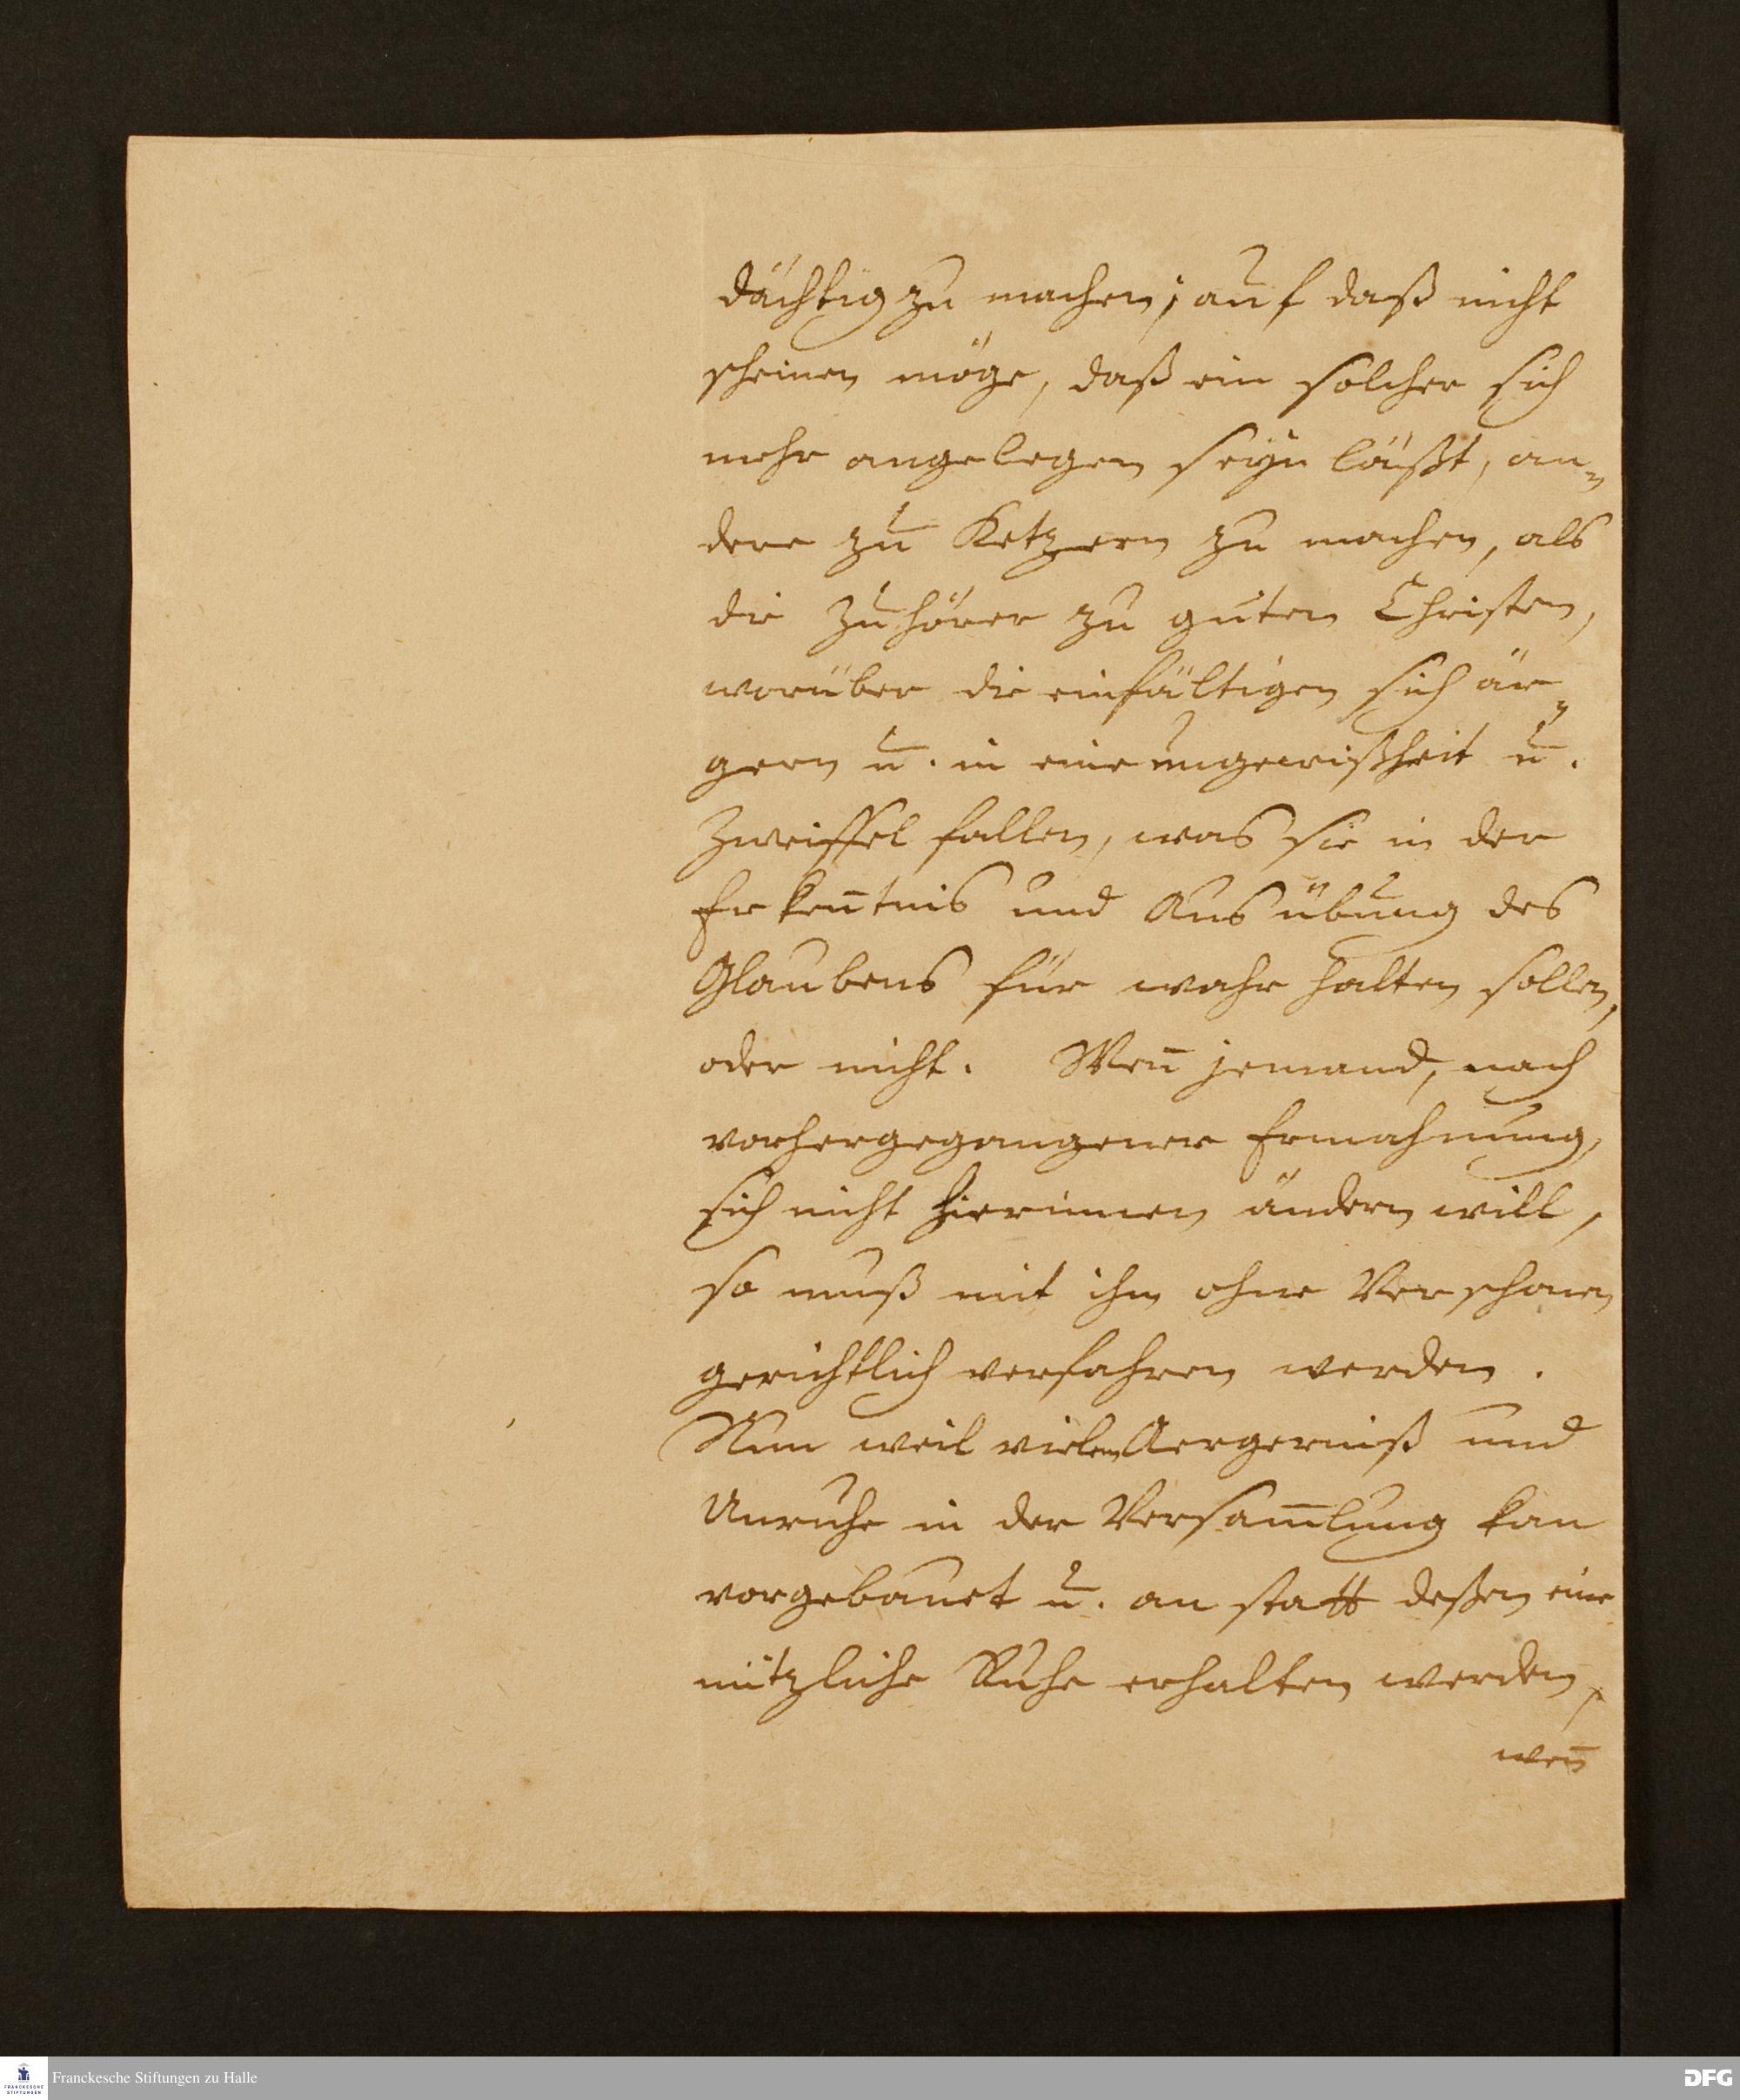 dächtig zu machen; auf daß nicht
scheinen möge, daß ein solcher sich
mehr angelegen seyn läußt, an=
dere zu Ketzern zu machen, als
die Zuhörer zu guten Christen,
worüber die einfältigen sich är=
gern u. in eine ungewißheit u.
Zweiffel fallen, was sie in der
Erkeñtnis und Ausübung des
Glaubens für wahr halten sollen,
oder nicht. Weñ jemand, nach
vorhergegangener Ermahnung,
sich nicht hierinnen ändern will,
so muß mit ihm ohne Verschonen
gerichtlich verfahren werden.
Nun weil vielem Aergerniß und
Unruhe in der Versam̄lung kan
vorgebauet u. an statt deßen eine
nützliche Ruhe erhalten werden,
weñ
Franckesche Stiftungen zu Halle
FRANCKESCHE
STIFTUNGEN
DFG